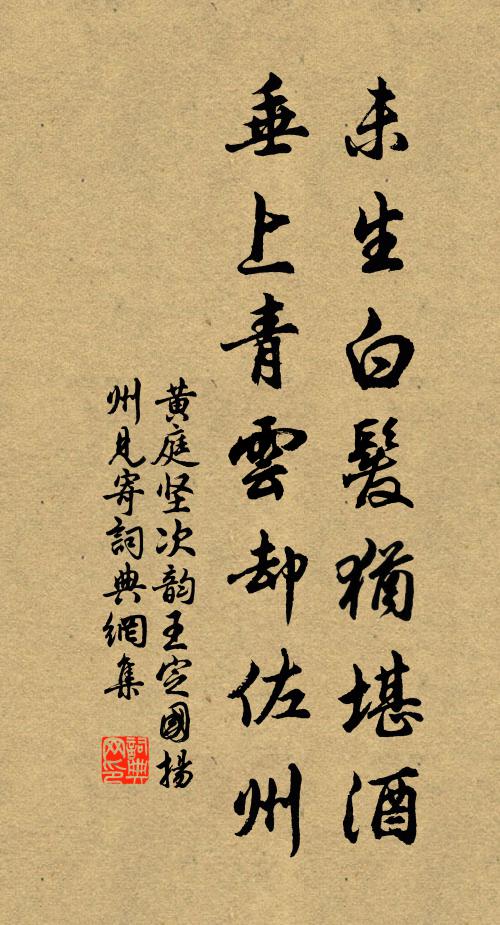 未生白髮猶堪酒
垂上青雲却佐州
黄庭坚次韵王定國揚
州見寄詞典網集
詞典网印